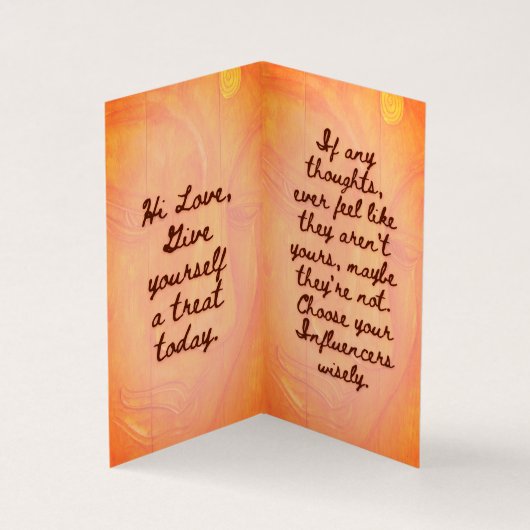 Hi Love,
Give
yourself
a treat
today.
If any
thoughts,
ever feel like
they aren't
yours, maybe
they're not.
Choose your
Influencers
wisely.